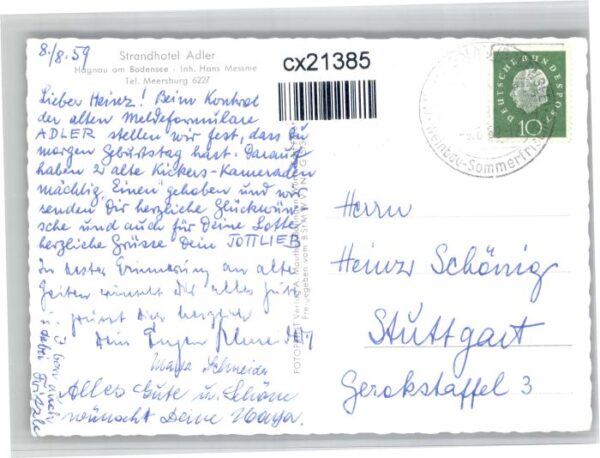 8./8.59
Strandhotel Adler
Hagnau am Bodensee - Inh. Hans Messme
Tel. Meersburg 6227
cx21385
Lieber Heinz! Beim Kontrol
der alten Meldeformulare
ADLER stellen wir fest, dass Du
morgen Geburtstag hast. Darauf
haben 2 alte Kickers-Kameraden
mächtig "Einen" gehoben und wir
senden Dir herzliche Glückwün
sche und auch für Deine Lotte
herzliche Grüsse Dein TOTTLIEB
In bester Erinnerung an alte
Zeiten wünscht Dir alles Gute
grüsst Dich herzlich
Dein Eugen
Schneider
Alles Gute u. Schöne
wünscht Deine
DEUTSCHE BUNDESPOST
10
Weinbau-Sommerfris
Herrn
Heinz Schönig
Stuttgart
Gerokstaffel 3